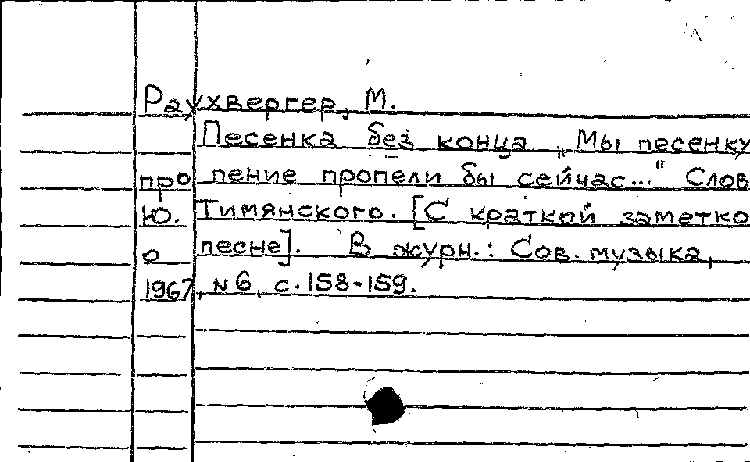 Раухвергер, М.
Песенка без конца „Мы песенку
про пение пропели бы сейчас..." Слов
Ю. Тимянского. [С краткой заметко
о песне]. В журн.: Сов. музыка,
1967, №6, с. 158-159.